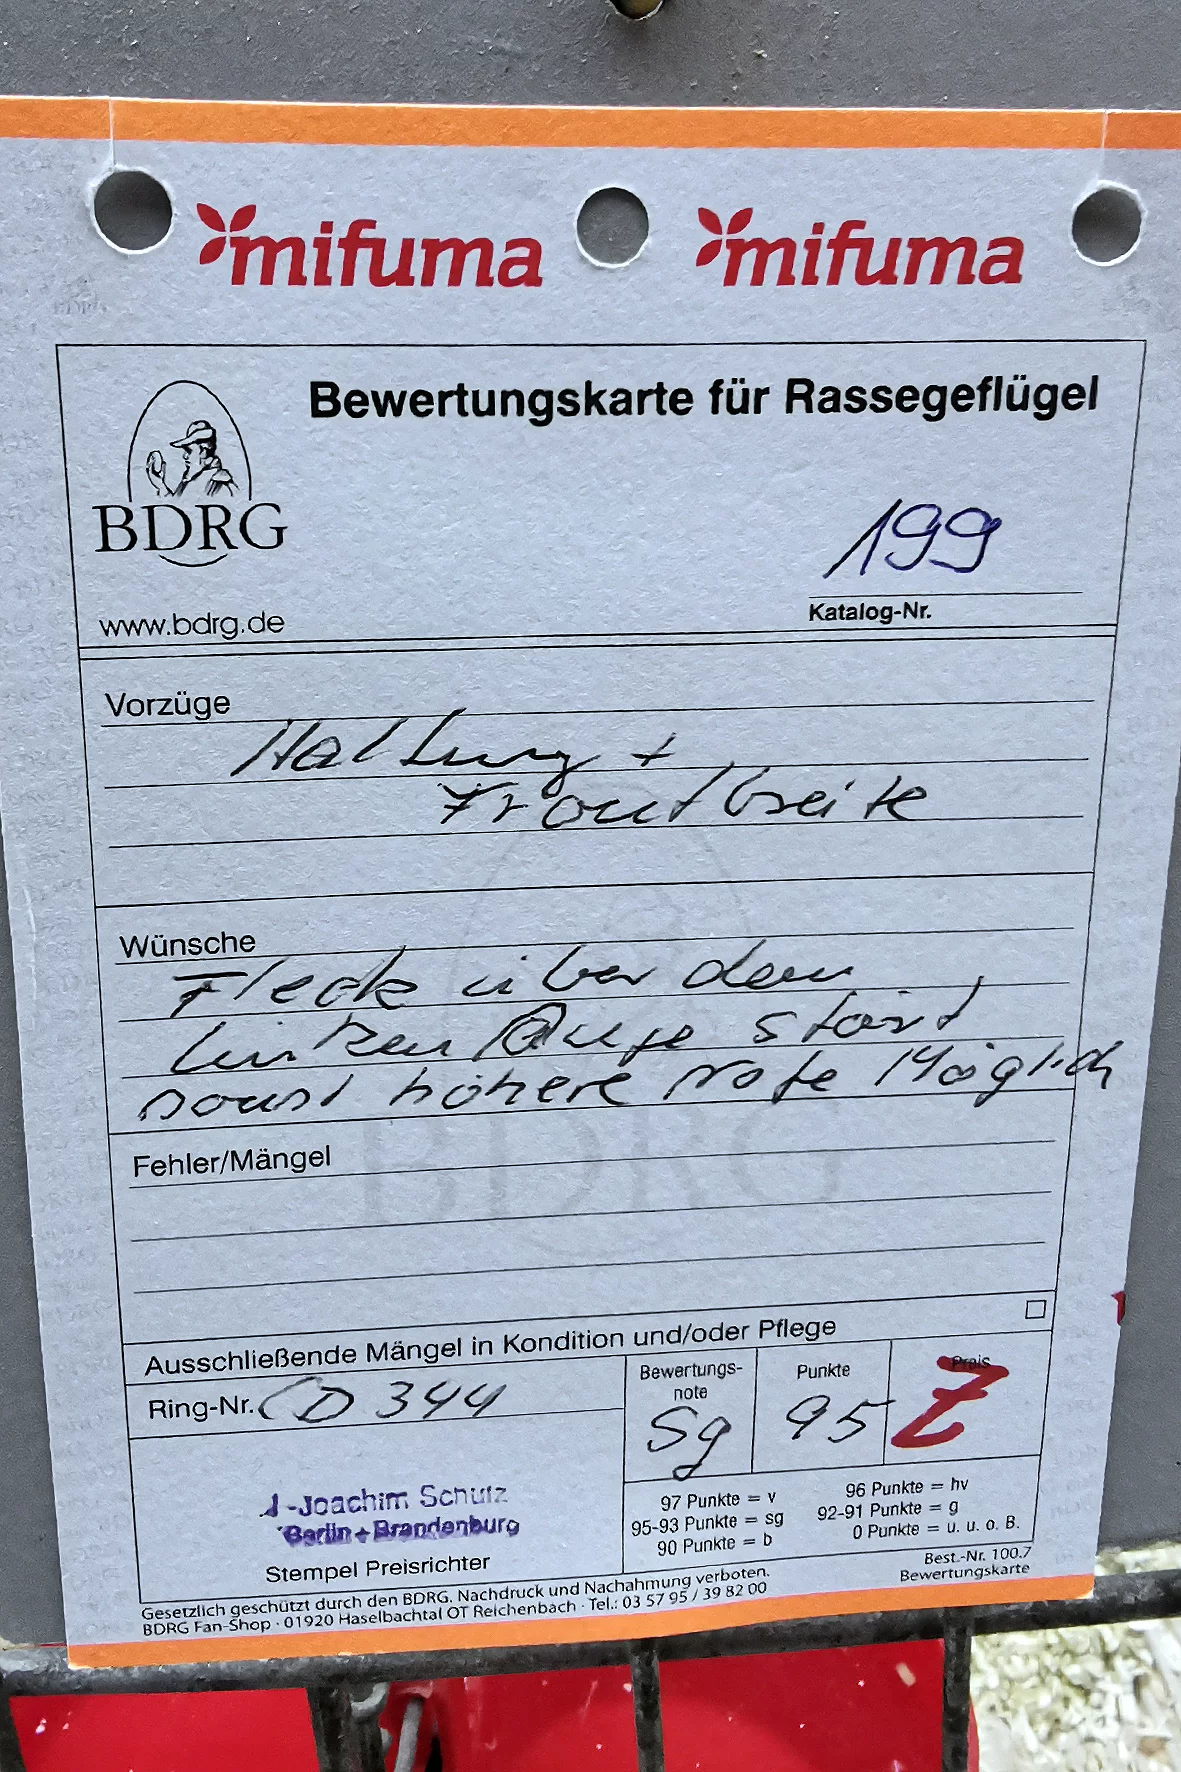 mifuma mifuma
Bewertungskarte für Rassegeflügel
BDRG
www.bdrg.de
199
Katalog-Nr.
Vorzüge
Haltung +
Frontbreite
Wünsche
Fleck über dem
linken Auge stört
sonst höhere Note Möglich
BDRG
Fehler/Mängel
Ausschließende Mängel in Kondition und/oder Pflege
Ring-Nr. CD 344
Bewertungs-
note
Sg
Punkte
95
Preis
Z
-Joachim Schulz
Berlin + Brandenburg
Stempel Preisrichter
97 Punkte = v 96 Punkte = hv
95-93 Punkte = sg 92-91 Punkte = g
90 Punkte = b 0 Punkte = u. u. o. B.
Best.-Nr. 100.7
Bewertungskarte
Gesetzlich geschützt durch den BDRG. Nachdruck und Nachahmung verboten.
BDRG Fan-Shop · 01920 Haselbachtal OT Reichenbach · Tel.: 03 57 95 / 39 82 00